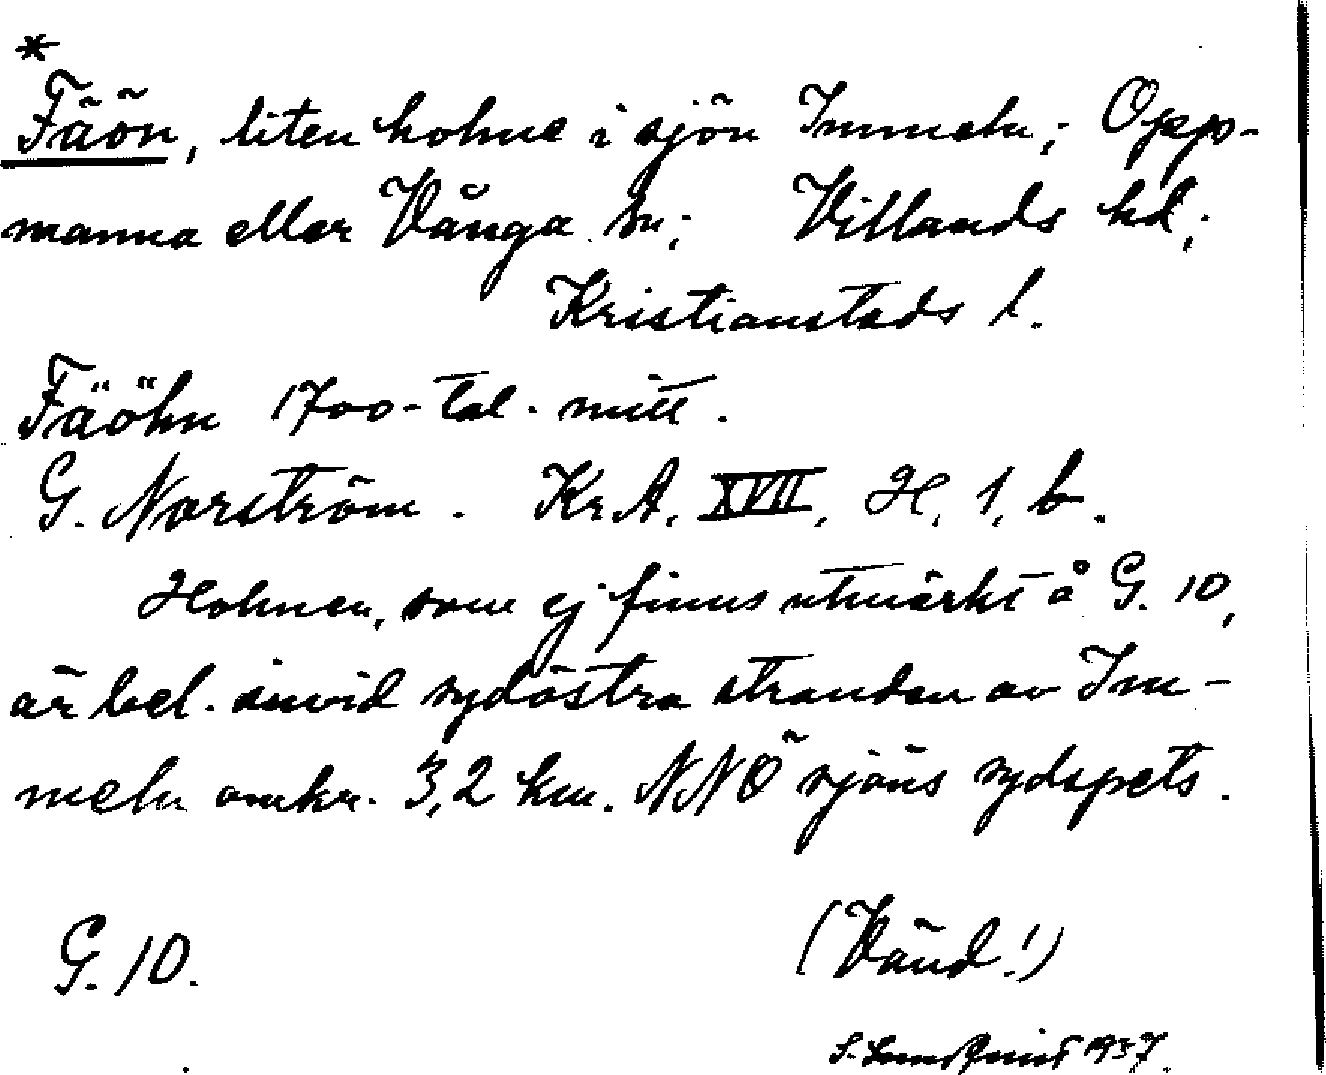 *
Fäön, liten holme i sjön Immeln; Opp-
manna eller Vånga sn; Villands hd;
Kristianstads l.
Fäöhn 1700-tal. mitt.
G. Norström. Kr.A. XVII, H, 1, b.
Holmen, som ej finns utmärkt å G. 10,
är bel. invid sydöstra stranden av Im-
meln omkr. 3,2 km. NNÖ sjöns sydspets.
G. 10.
(Vänd!)
S. Lundquist 1937.